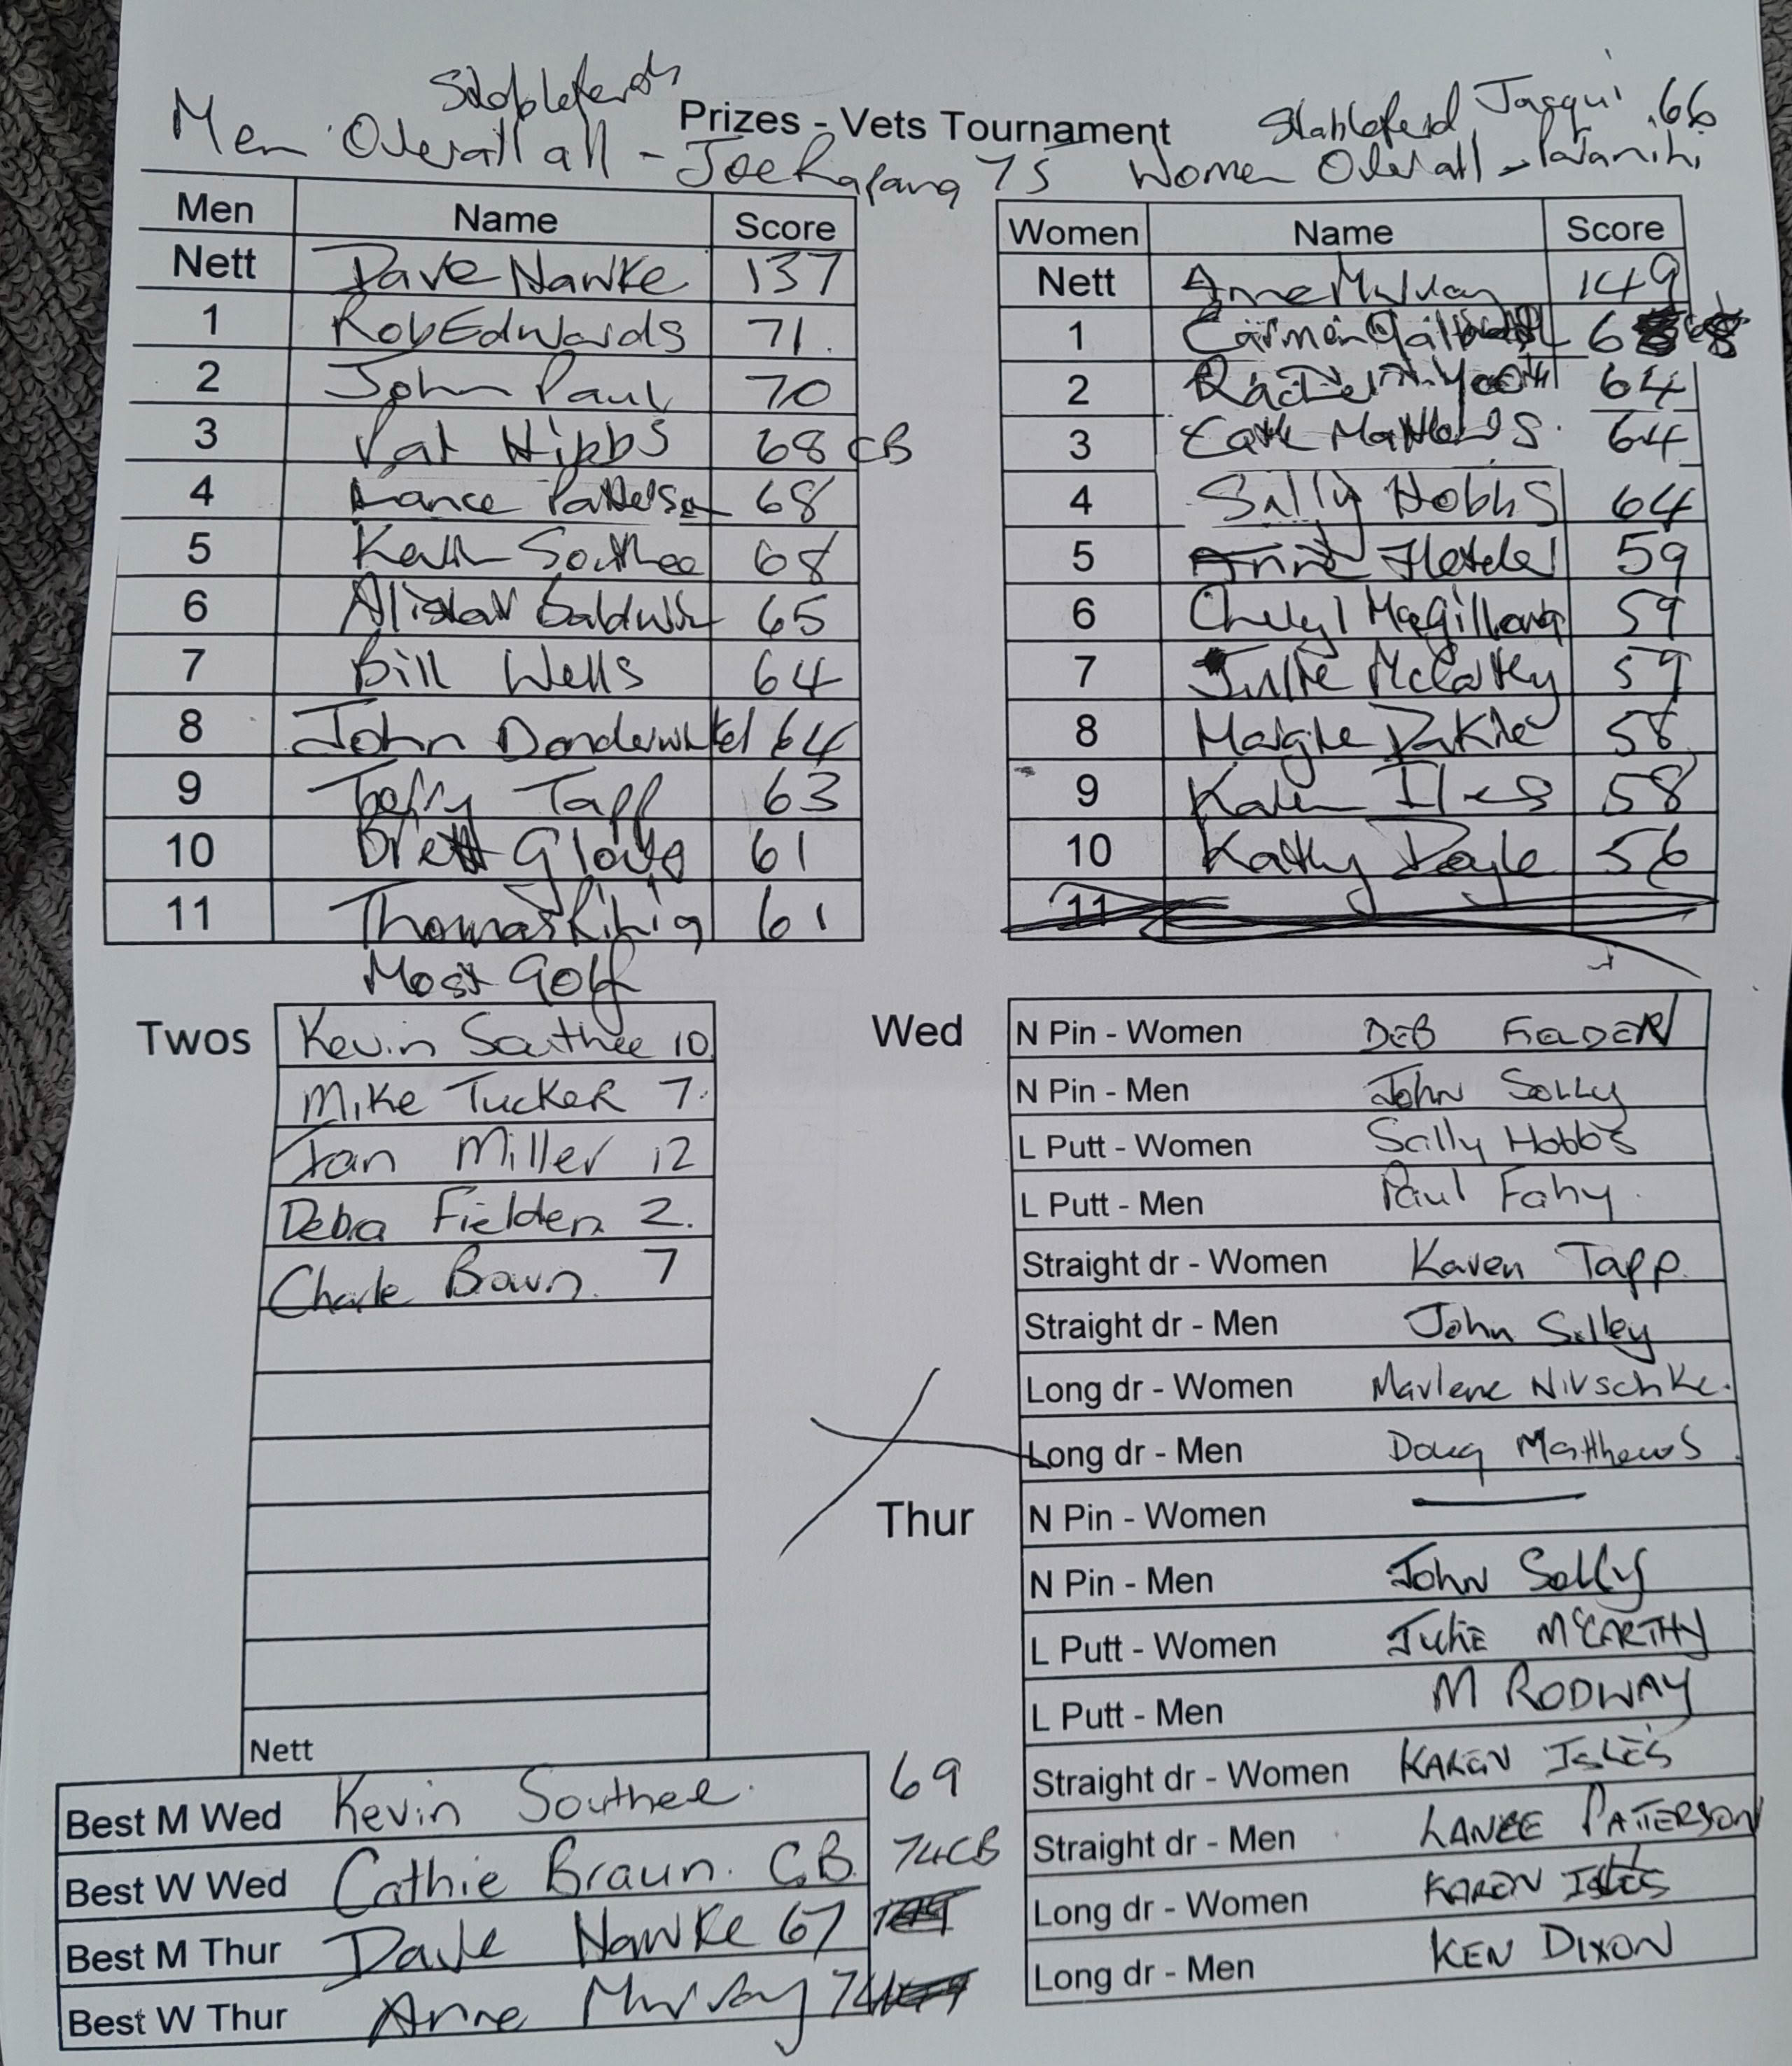 Stablefords
Prizes - Vets Tournament
Stableford Jacqui 66
Men Overall all - Joe 75
Women Overall -
Men Name Score
Nett Dave Hawke 137
1 Rob Edwards 71.
2 John Paul 70
3 Pat Hibbs 68 CB
4 Lance Patterson 68
5 Kevin Southee 68
6 Alistair Baldwin 65
7 Bill Wells 64
8 John Donderwinkel 64
9 Terry Tapp 63
10 Brett Glover 61
11 Thomas Rihia 61
Women Name Score
Nett Anne Murray 149
1 Carmen 68
2 64
3 Cath Matthews. 64
4 Sally Hobbs 64
5 Anne 59
6 Cheryl 59
7 Julie McCarthy 59
8 58
9 Karen Iles 58
10 Kathy Doyle 56
11
Most Golf
Twos
Kevin Southee 10
Mike Tucker 7.
Ian Miller 12
Debra Fielden 2.
Braun. 7
Nett
Best M Wed Kevin Southee. 69
Best W Wed Cathie Braun. CB 74CB
Best M Thur Dave Hawke 67
Best W Thur Anne Murray 74
Wed
N Pin - Women DEB
N Pin - Men John Solly
L Putt - Women Sally Hobbs
L Putt - Men Paul Fahy.
Straight dr - Women Karen Tapp.
Straight dr - Men John Solley
Long dr - Women Marlene Nitschke.
Long dr - Men Doug Matthews.
Thur
N Pin - Women —
N Pin - Men John Solly
L Putt - Women Julie McCARTHY
L Putt - Men M RODWAY
Straight dr - Women KAREN ISLES
Straight dr - Men LANCE PATTERSON
Long dr - Women KAREN ISLES
Long dr - Men KEN DIXON